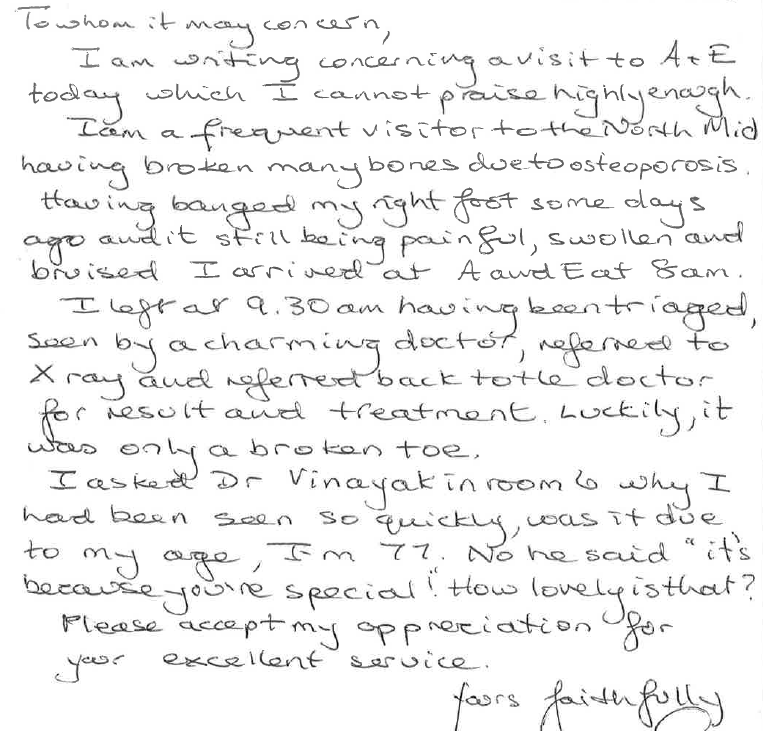 To whom it may concern,
I am writing concerning a visit to A+E
today which I cannot praise highly enough.
I am a frequent visitor to the North Mid
having broken many bones due to osteoporosis.
Having banged my right foot some days
ago and it still being painful, swollen and
bruised I arrived at A and E at 8am.
I left at 9.30am having been triaged,
seen by a charming doctor, referred to
X ray and referred back to the doctor
for result and treatment. Luckily, it
was only a broken toe.
I asked Dr Vinayak in room 6 why I
had been seen so quickly, was it due
to my age, I'm 77. No he said "it's
because you're special". How lovely is that?
Please accept my appreciation for
your excellent service.
Yours faithfully